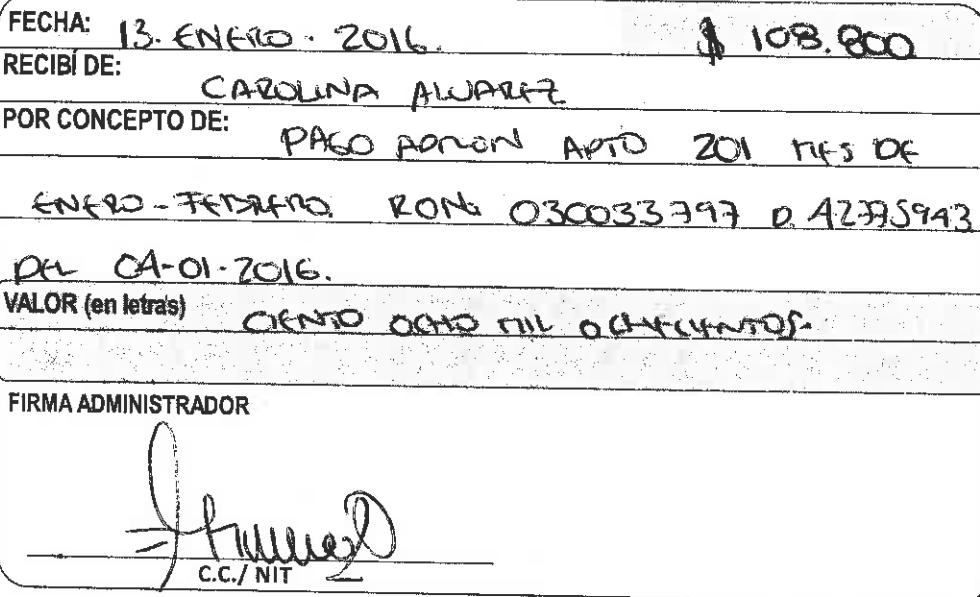 FECHA: 13. ENERO. 2016. $ 108.800
RECIBÍ DE:
CAROLINA ALVAREZ
POR CONCEPTO DE: PAGO ADMON APTO 201 MES DE
ENERO-FEBRERO. RON: 030033797 D. A2775943
DEL 04-01-2016.
VALOR (en letras) CIENTO OCHO MIL OCHECIENTOS.
FIRMA ADMINISTRADOR
C.C./ NIT